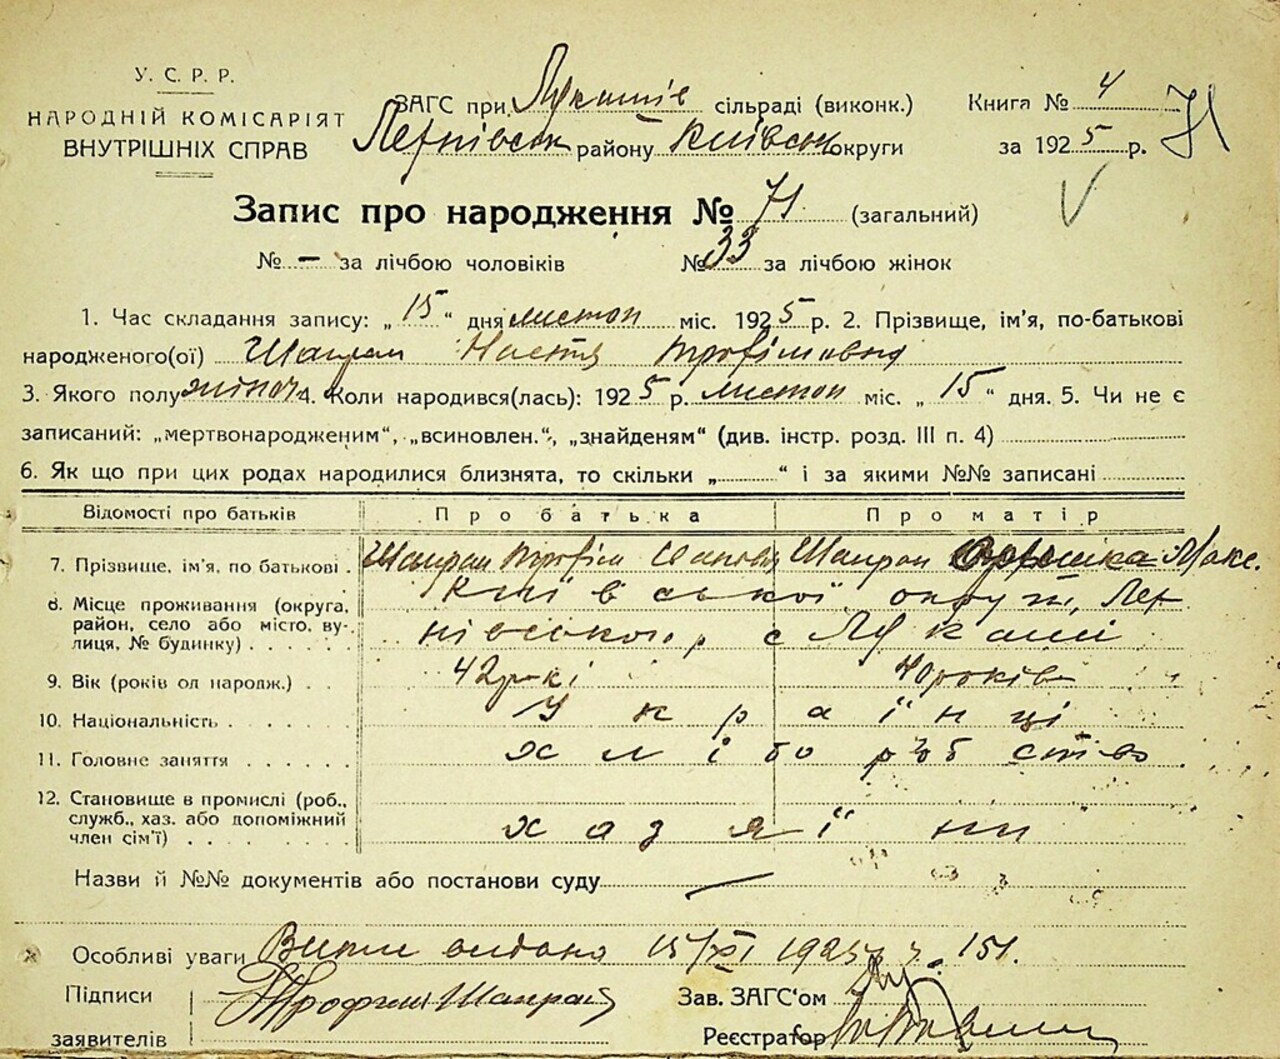 У. С. Р. Р.
НАРОДНІЙ КОМІСАРІЯТ
ВНУТРІШНІХ СПРАВ
ЗАГС при Лукашів сільраді (виконк.)
району Київськ округи
Книга № 4
за 1925 р.
71
Запис про народження № 71 (загальний)
№ – за лічбою чоловіків № 33 за лічбою жінок
1. Час складання запису: „15“ дня листоп міс. 1925 р. 2. Прізвище, ім’я, по-батькові
народженого(ої) Шапран Настя Трофімовна
3. Якого полу жіноч 4. Коли народився(лась): 1925 р. листоп міс. „15“ дня. 5. Чи не є
записаний: „мертвонародженим“, „всиновлен.“, „знайденям“ (див. інстр. розд. III п. 4)
6. Як що при цих родах народилися близнята, то скільки „ “ і за якими №№ записані
Відомості про батьків Про батька Про матір
7. Прізвище, ім’я, по батькові Шапран Трофім Шапран Макс.
8. Місце проживання (округа, Київської округи,
район, село або місто, ву- с Лукаші
лиця, № будинку)
9. Вік (років од народж.) 42 рокі 40 років
10. Національність Українці
11. Головне заняття хліборобство
12. Становище в промислі (роб.,
служб., хаз. або допоміжний
член сім’ї) хазяїни
Назви й №№ документів або постанови суду —
Особливі уваги видана 15/XI 1925 р. 151.
Підписи Трофим Шапран Зав. ЗАГС‘ом
заявителів Реєстратор